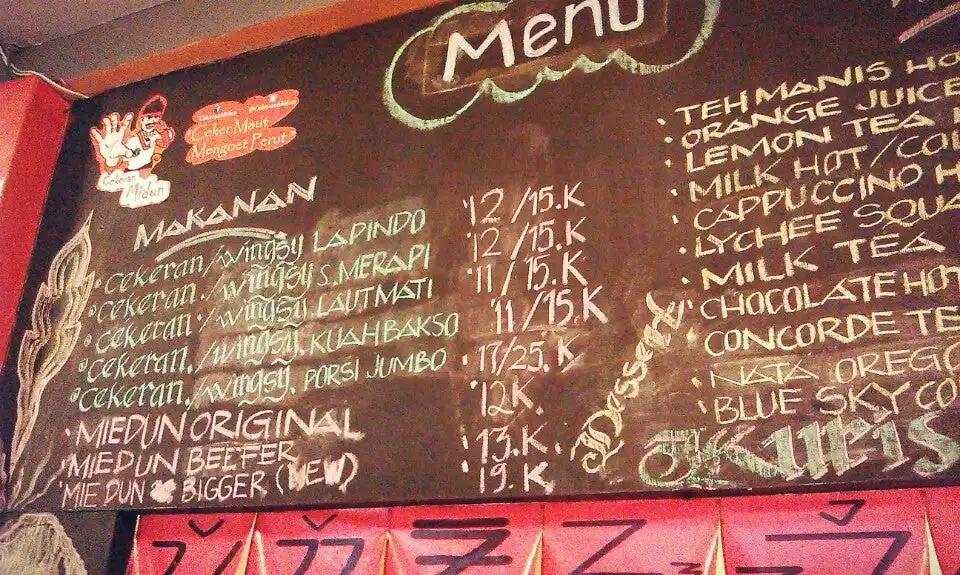 Menu
Ceker Maut
Mengoet Perut
Cekeran
Midun
MAKANAN
cekeran/wingsy LAPINDO 12/15.K
cekeran/wingsy S.MERAPI 12/15.K
cekeran./wingsy. LAUT MATI 11/15.K
cekeran./wingsy. KUAH BAKSO 11/15.K
cekeran./wingsy. PORSI JUMBO 17/25.K
MIEDUN ORIGINAL 12K.
MIEDUN BEEFER 13.K.
MIE DUN BIGGER (NEW) 19.K
TEH MANIS HO
ORANGE JUICE
LEMON TEA
MILK HOT/COL
CAPPUCCINO H
LYCHEE SQUA
MILK TEA
CHOCOLATE HOT
CONCORDE TE
Dessert
NATA OREGO
BLUE SKY CO